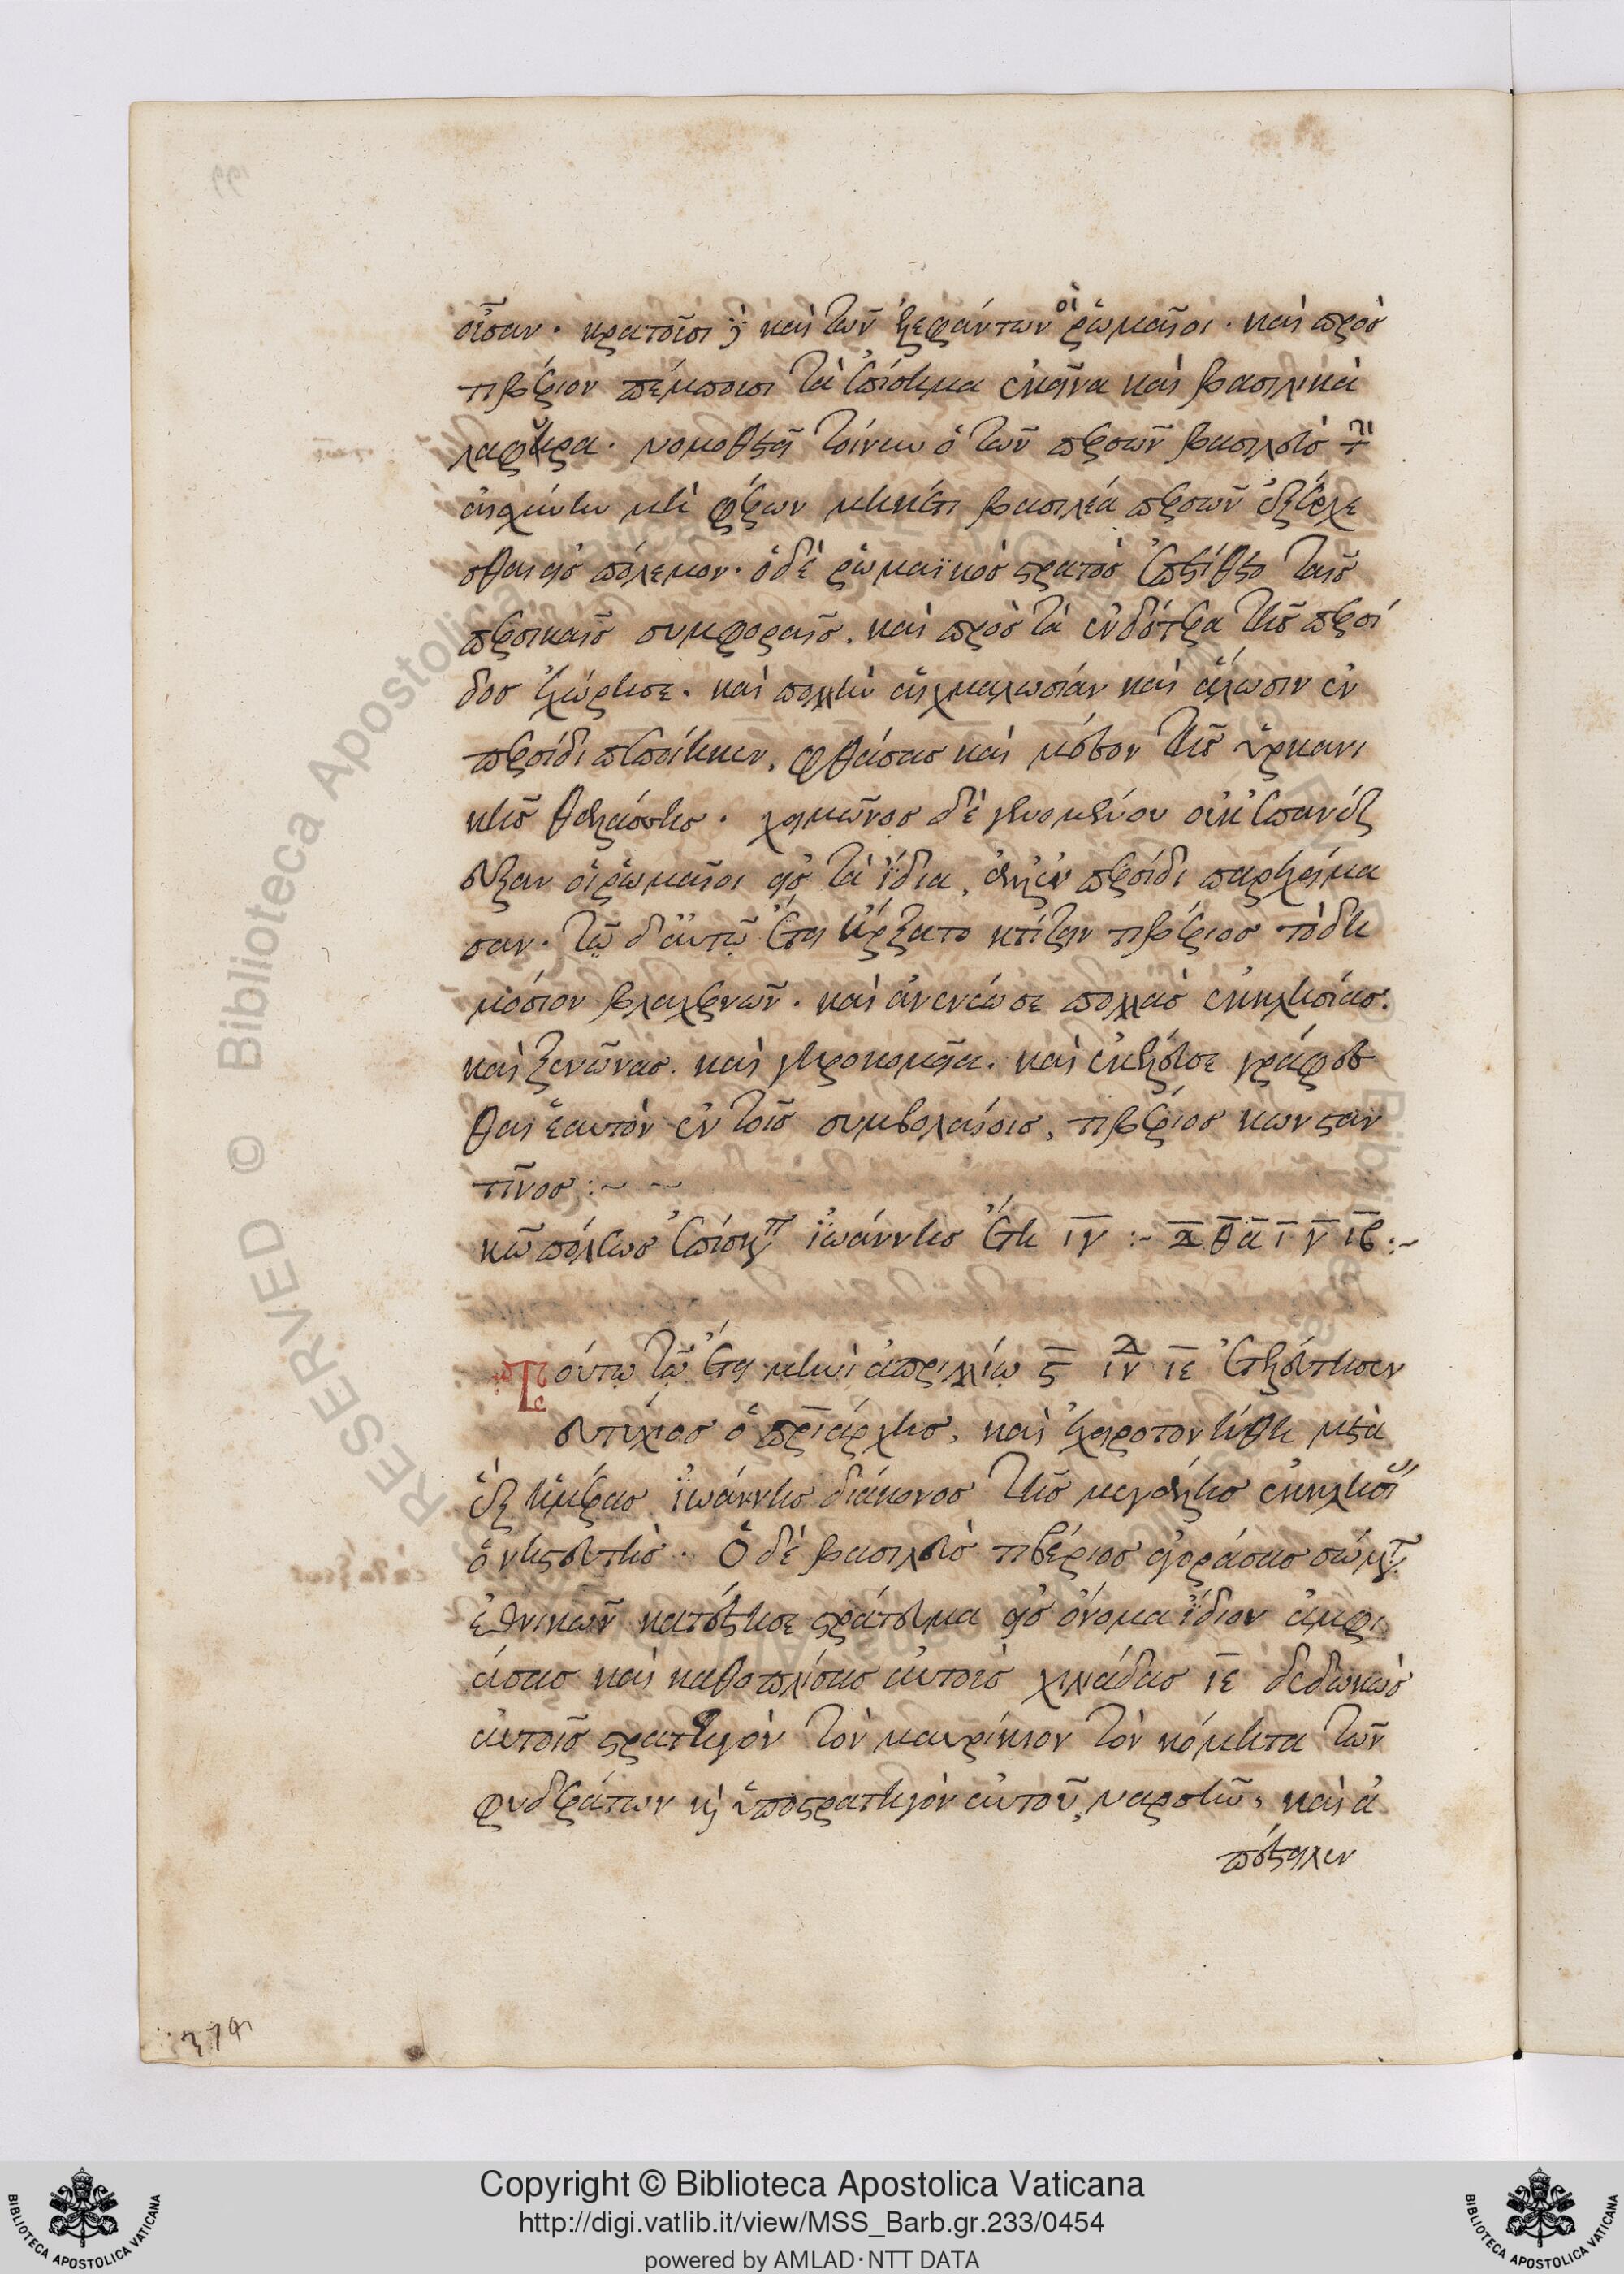 οῖσαν. κρατοῦσι δὲ καὶ τῶν ἐλεφάντων οἱ ῥωμαῖοι. καὶ πρὸς
τιβέριον πέμπουσι τὰ ἐπίσημα ἐκεῖνα καὶ βασιλικὰ
λάφυρα. νομοθετεῖ τοίνυν ὁ τῶν περσῶν βασιλεὺς
αἰσχύνην μὴ φέρων μηκέτι βασιλέα περσῶν ἐξέρχε
σθαι εἰς πόλεμον. ὁ δὲ ῥωμαϊκὸς στρατὸς ἐπετίθετο ταῖς
περσικαῖς συμφοραῖς. καὶ πρὸς τὰ ἐνδότερα τῆς περσί
δος ἐχώρησε. καὶ πολλὴν αἰχμαλωσίαν καὶ ἅλωσιν ἐν
περσίδι πεποίηκεν, φθάσας καὶ μέσον τῆς ὑρκανι
κῆς θαλάσσης. χειμῶνος δὲ γενομένου οὐκ ἐπανέζ
ευξαν οἱ ῥωμαῖοι εἰς τὰ ἴδια, ἀλλ' ἐν περσίδι παρεχείμα
σαν. τῷ δ' αὐτῷ ἔτει ἤρξατο κτίζειν τιβέριος τὸ δη
μόσιον βλαχερνῶν. καὶ ἀνενέωσε πολλὰς ἐκκλησίας.
καὶ ξενῶνας. καὶ γηροκομεῖα. καὶ ἐκέλευσε γράφεσ
θαι ἑαυτὸν ἐν τοῖς συμβολαίοις, τιβέριος κωνσταν
τῖνος :~ ~
κῶ πόλεως ἐπίσκοπ ἰωάννης ἔτη ιγ :~ λ θ α ι γ ιβ :~
Τούτῳ τῷ ἔτει μηνὶ ἀπριλλίῳ ϛ ἰν ιε ἐτελεύτησεν
ευτύχιος ὁ πριάρχης, καὶ ἐχειροτονήθη μετὰ
ἓξ ἡμέρας ἰωάννης διάκονος τῆς μεγάλης ἐκκλησί
ὁ νηστευτής. Ὁ δὲ βασιλεὺς τιβέριος ἀγοράσας σώματ
ἐθνικῶν κατέστησε στράτευμα εἰς ὄνομα ἴδιον ἀμφι
άσας καὶ καθοπλίσας αὐτοὺς χιλιάδας ιε δεδωκὼς
αὐτοῖς στρατηγὸν τὸν μαυρίκιον τὸν κόμητα τῶν
φυδεράτων κ̀ ὑποστρατηγὸν αὐτοῦ, ναρσῆν, καὶ ἀ
πέστειλεν
Copyright © Biblioteca Apostolica Vaticana
http://digi.vatlib.it/view/MSS_Barb.gr.233/0454
powered by AMLAD·NTT DATA